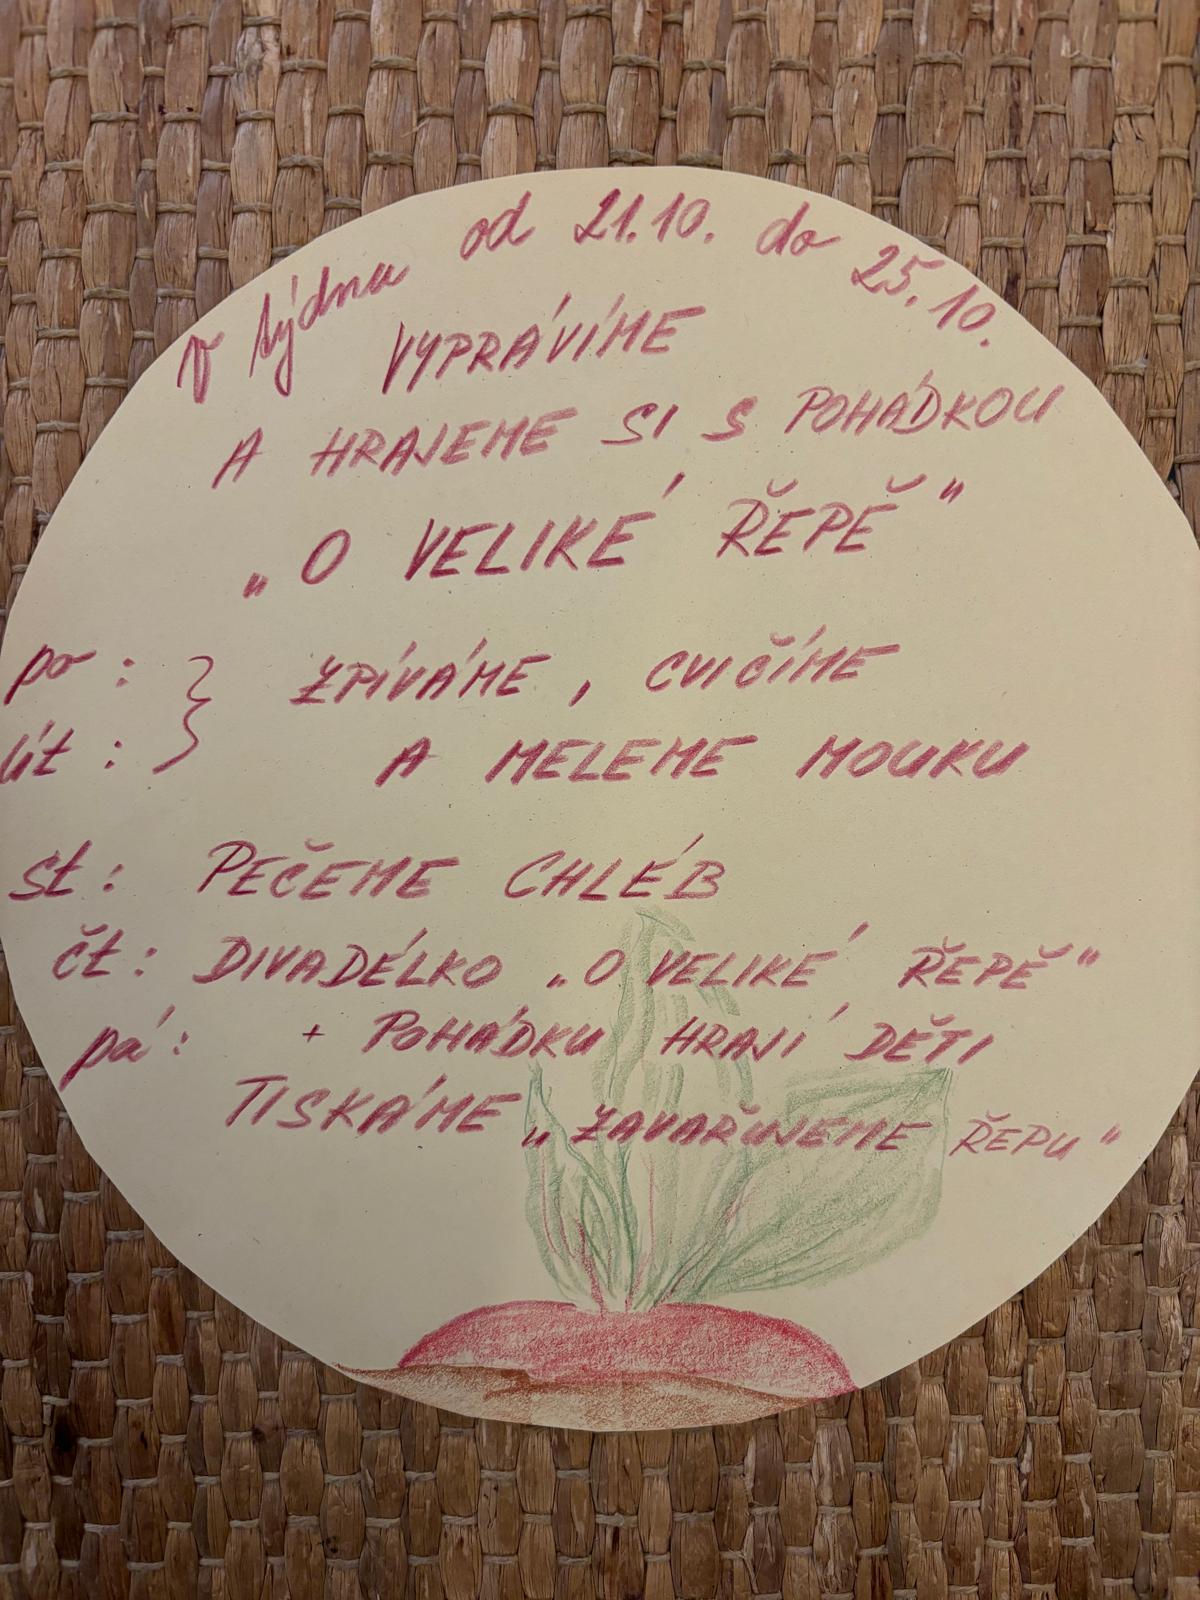 V týdnu od 21.10. do 25.10.
VYPRÁVÍME
A HRAJEME SI S POHÁDKOU
„O VELIKÉ ŘEPĚ“
po : } ZPÍVÁME, CVIČÍME
út : } A MELEME MOUKU
st : PEČEME CHLÉB
čt : DIVADÉLKO „O VELIKÉ ŘEPĚ“
pá : + POHÁDKU HRAJÍ DĚTI
TISKÁME „ZAVAŘUJEME ŘEPU“